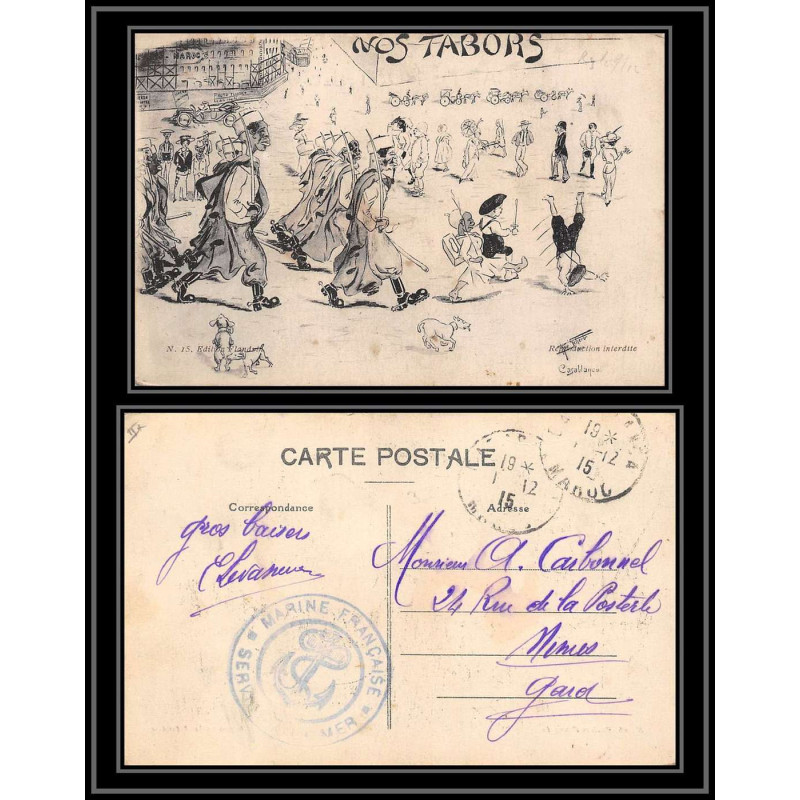 NOS TABORS
MAROC
N. 15. Edition Flandrin
Reproduction interdite
Casablanca
CARTE POSTALE
Correspondance
Adresse
19 *
1 12
15
MAROC
19 *
1 12
15
gros baisers
Monsieur A. Carbonnel
24 Rue de la Posterle
Nimes
Gard
MARINE FRANÇAISE
SERV
MER